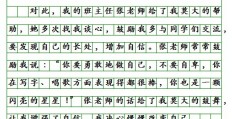 对此，我的班主任张老师给了我莫大的帮
助，她多次找我谈心，鼓励我多与同学们交流，
要发现自己的长处，增加自信。张老师常常鼓
励我说：“你要勇敢地做自己，不要自卑，你
在写字、唱歌方面表现得都很棒，你也是一颗
闪亮的星星！”张老师的话给了我莫大的鼓舞，